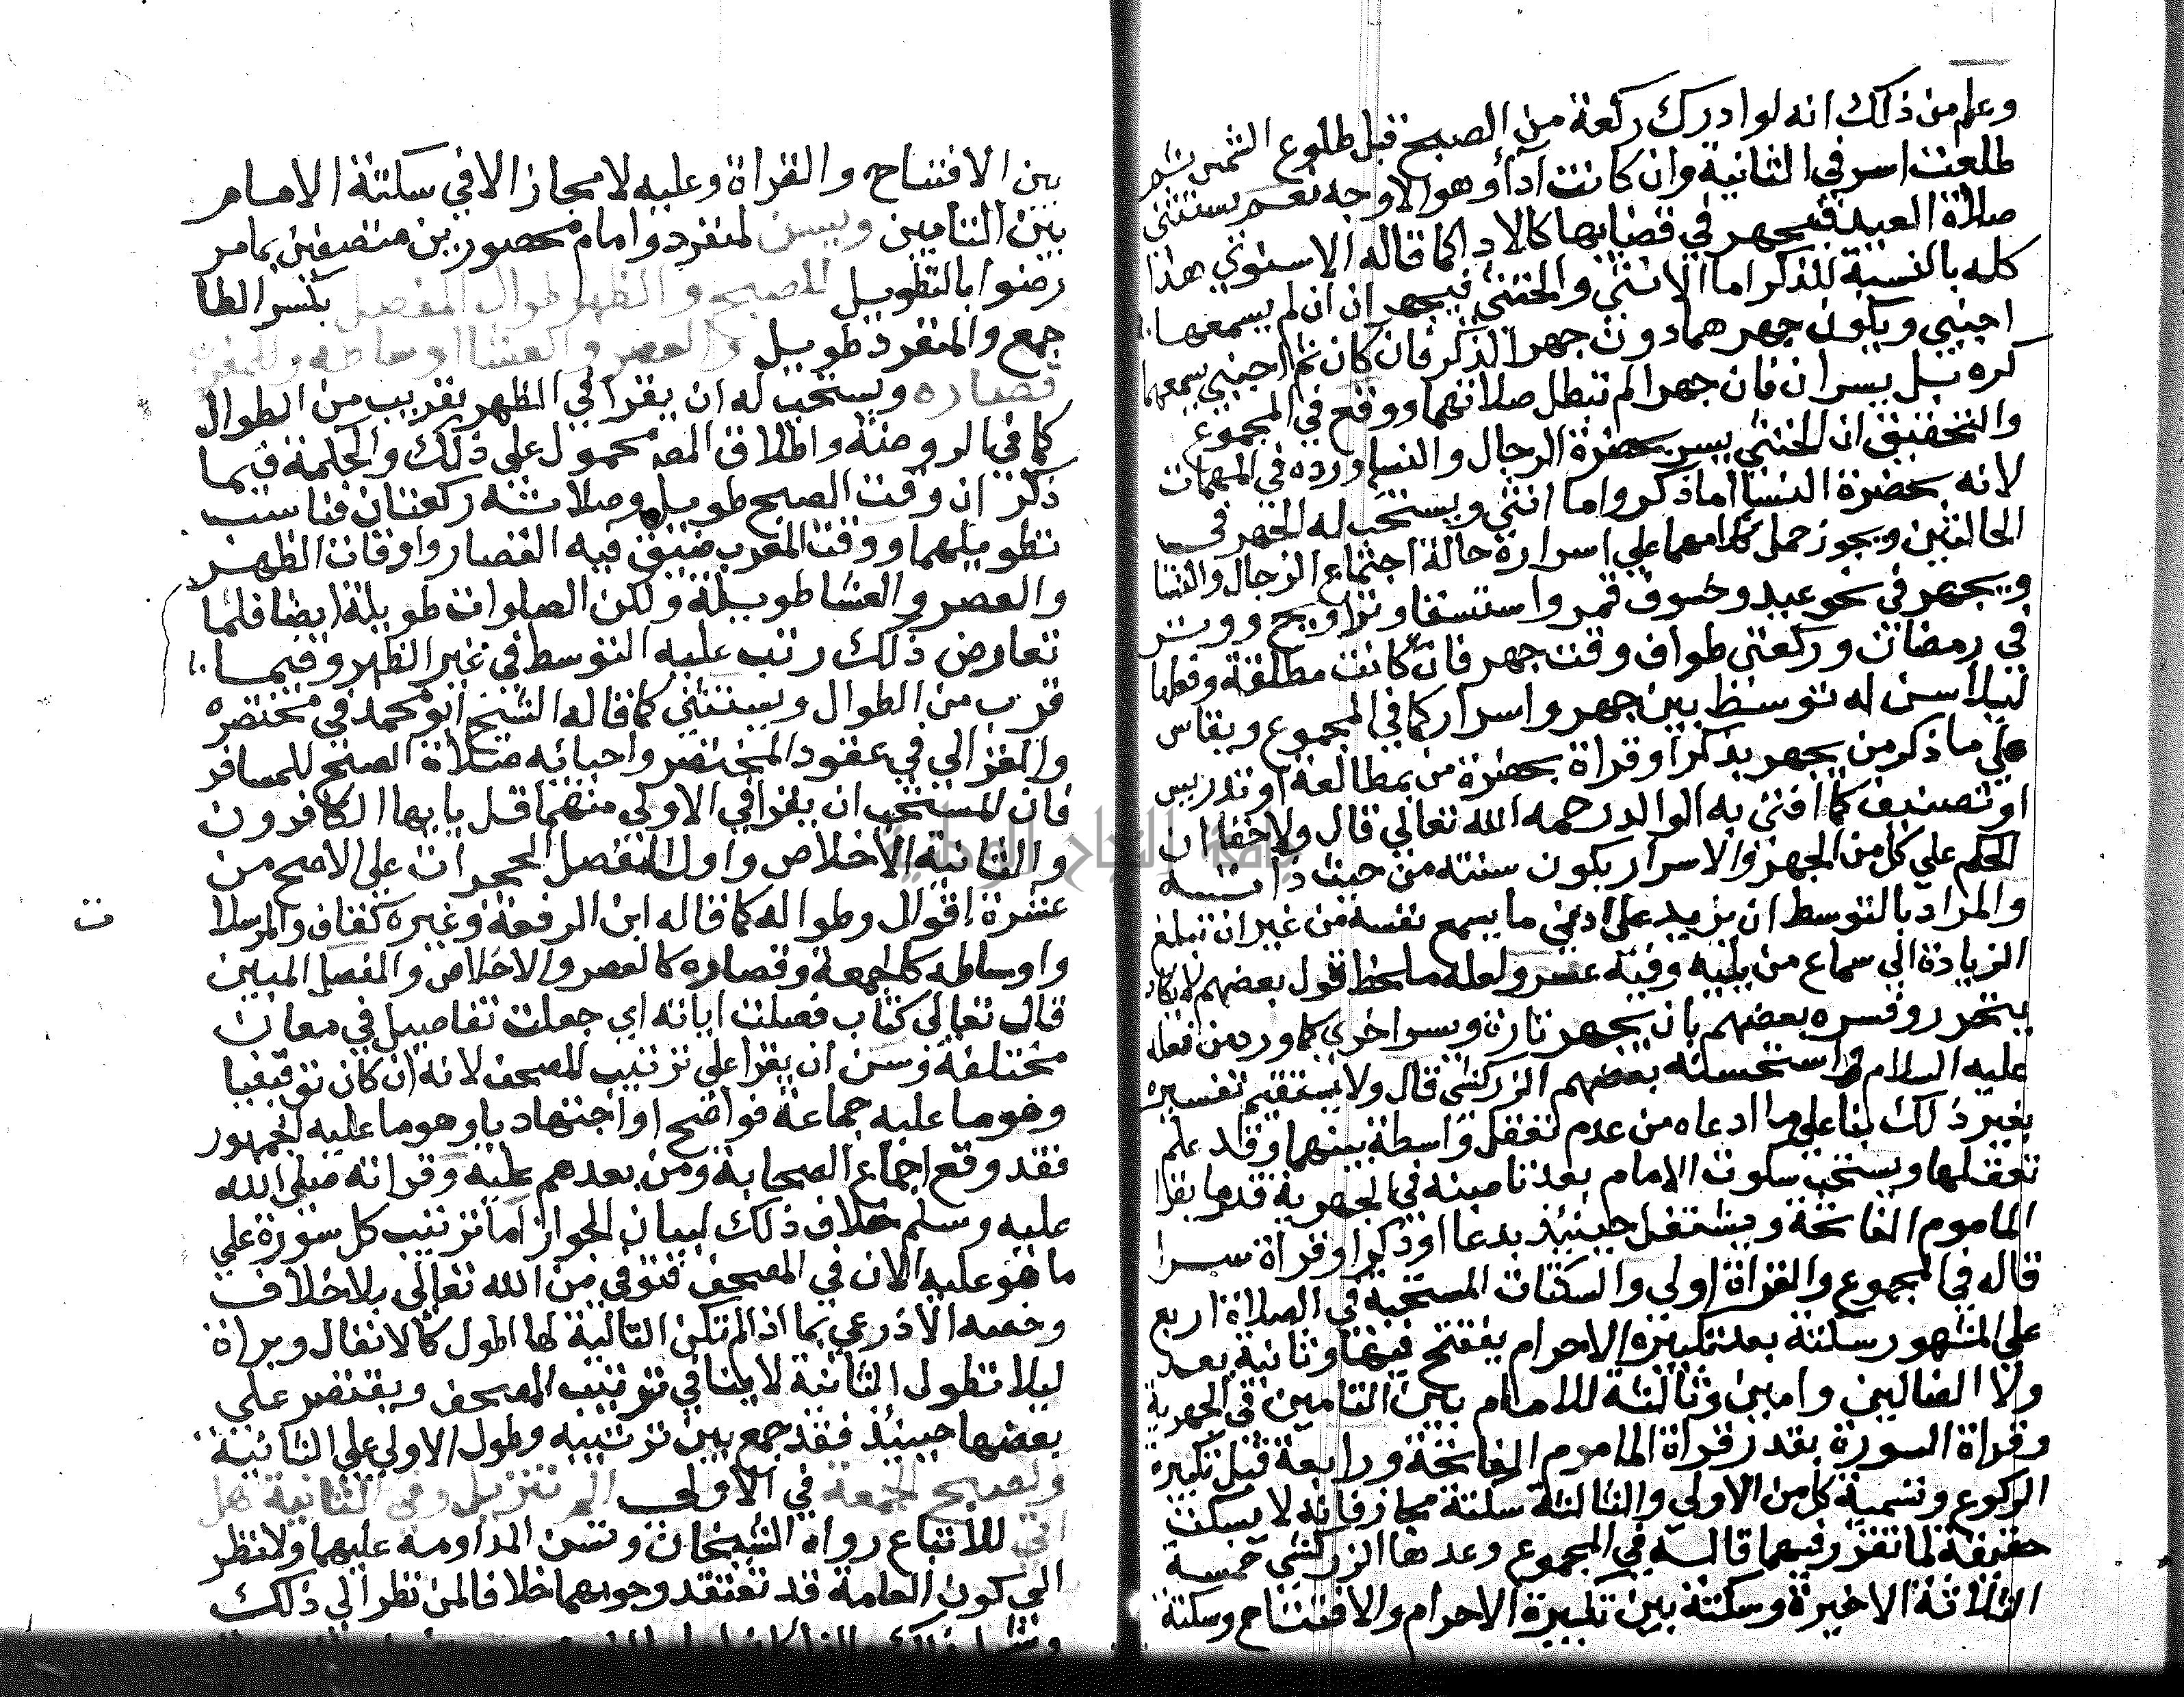 وعلم من ذلك انه لو ادرك ركعة من الصبح قبل طلوع الشمس ثم
طلعت اسر في الثانية وان كانت اداً وهو الاوجه نعم يستثنى
صلاة العيد فيجهر في قضايها كالاداكما قاله الاسنوي هذا
كله بالنسبة للذكر اما الانثى والخنثى فيجهران ان لم يسمعهما
اجنبي ويكون جهرهما دون جهر الذكر فان كان ثم اجنبي يسمعهما
كره بل يسران فان جهرا لم تبطل صلاتهما ووقع في المجموع
والتحقيق ان الخنثى يسر بحضرة الرجال والنسا ورده في المهمات
لانه بحضرة النسا اما ذكر واما انثى ويستحب له الجهر في
الحالتين ويجوز حمل كلامهما علي اسراره حالة اجتماع الرجال والنسا
ويجهر في نحو عيد وخسوف قمر واستسقا وتراويح ووتر
في رمضان وركعتي طواف وقت جهر فان كانت مطلقة وفعلها
ليلا سن له توسط بين جهر واسرار كما في المجموع ويقاس
علي ما ذكر من يجهر بذكر او قراة بحضرة من بمطالعة او تدريس
او تصنيف كما افتى به الوالد رحمه الله تعالي قال ولا خفا ان
الحكم علي كل من الجهر والاسرار بكون سنته من حيث ذاته
والمراد بالتوسط ان يزيد علي ادني ما يسمع نفسه من غير ان تبلغ
الزيادة الي سماع من يليه وفيه عسر ولعله ملحظ قول بعضهم لا يكاد
يتحرر وفسره بعضهم بان يجهر تارة ويسر اخرى كما ورد من فعله
عليه السلام واستحسنه بعضهم الزركشي قال ولا يستقيم تفسيره
بغير ذلك بنا علي ما ادعاه من عدم تعقل واسطة بينهما وقد علم
تعقلها ويستحب سكوت الامام بعد تامينه في الجهرية قدر ما يقرا
الماموم الفاتحة ويشتغل حينئذ بدعا او ذكر او قراة سرا
قاله في المجموع والقراة اولى والسكتات المستحبة في الصلاة اربع
علي المشهور سكتة بعد تكبيرة الاحرام يفتتح فيها وثانية بعد
ولا الضالين وامين وثالثة للامام بين التامين في الجهرية
وقراة السورة بقدر قراة الماموم الفاتحة ورابعة قبل تكبيرة
الركوع وتسمية كل من الاولي والثالثة سكتة مجاز فانه لا يسكت
حقيقة لما تقرر فيهما قاله في المجموع وعدها الزركشي خمسة
الثلاثة الاخيرة وسكتة بين تكبيرة الاحرام والافتتاح وسكتة
بين الافتتاح والقراة وعليه لا مجاز الا في سكتة الامام
بين التامين ويسن لمنفرد وامام محصورين متصفين بما مر
رضوا بالتطويل للصبح والظهر طوال المفصل بكسر الطا
جمع والمفرد طويل والعصر والعشا اوساطه وللمغرب
قصاره ويستحب له ان يقرا في الظهر بقريب من الطوال
كما في الروضة واطلاق المصـ محمول علي ذلك والحكمة فيما
ذكر ان وقت الصبح طويل وصلاته ركعتان فناسب
تطويلهما ووقت المغرب ضيق فيه القصار واوقات الظهر
والعصر والعشا طويلة ولكن الصلوات طويلة ايضا فلما
تعارض ذلك رتب عليه التوسط في غير الظهر وفيها
قرب من الطوال ويستثنى كما قاله الشيخ ابو محمد في مختصره
والغزالي في عقود المختصر واحيائه صلاة الصبح للمسافر
فان المستحب ان يقرا في الاولى منهما قل يا يها الكافرون
والثانية الاخلاص واول المفصل الحجرات علي الاصح من
عشرة اقوال وطواله كما قاله ابن الرفعة وغيره كقاف والمرسلا
ت
واوساطه كالجمعة وقصاره كالعصر والاخلاص والمفصل المبين
قال تعالى كتاب فصلت اياته اي جعلت تفاصيل في معان
مختلفة وسن ان يقرا علي ترتيب المصحف لانه ان كان توقيفيا
وهو ما عليه جماعة فواضح او اجتهاديا وهو ما عليه الجمهور
فقد وقع اجماع الصحابة ومن بعدهم عليه وقراته صلى الله
عليه وسلم خلاف ذلك لبيان الجواز اما ترتيب كل سورة علي
ما هو عليه الان في المصحف فتوقيفي من الله تعالى بلا خلاف
وخصه الاذرعي بما اذا لم تكن التالية لها اطول كالانفال وبراة
ليلا تطول الثانية لا ينافي ترتيب المصحف ويقتصر علي
بعضها حينئذ فقد جمع بين ترتيبه وطول الاولي علي الثانية
ولصبح الجمعة في الاولى الم تنزيل وفي الثانية هل
اتى للاتباع رواه الشيخان وتسن المداومه عليهما ولا نظر
الي كون العامة قد تعتقد وجوبهما خلافا لمن نظر الي ذلك